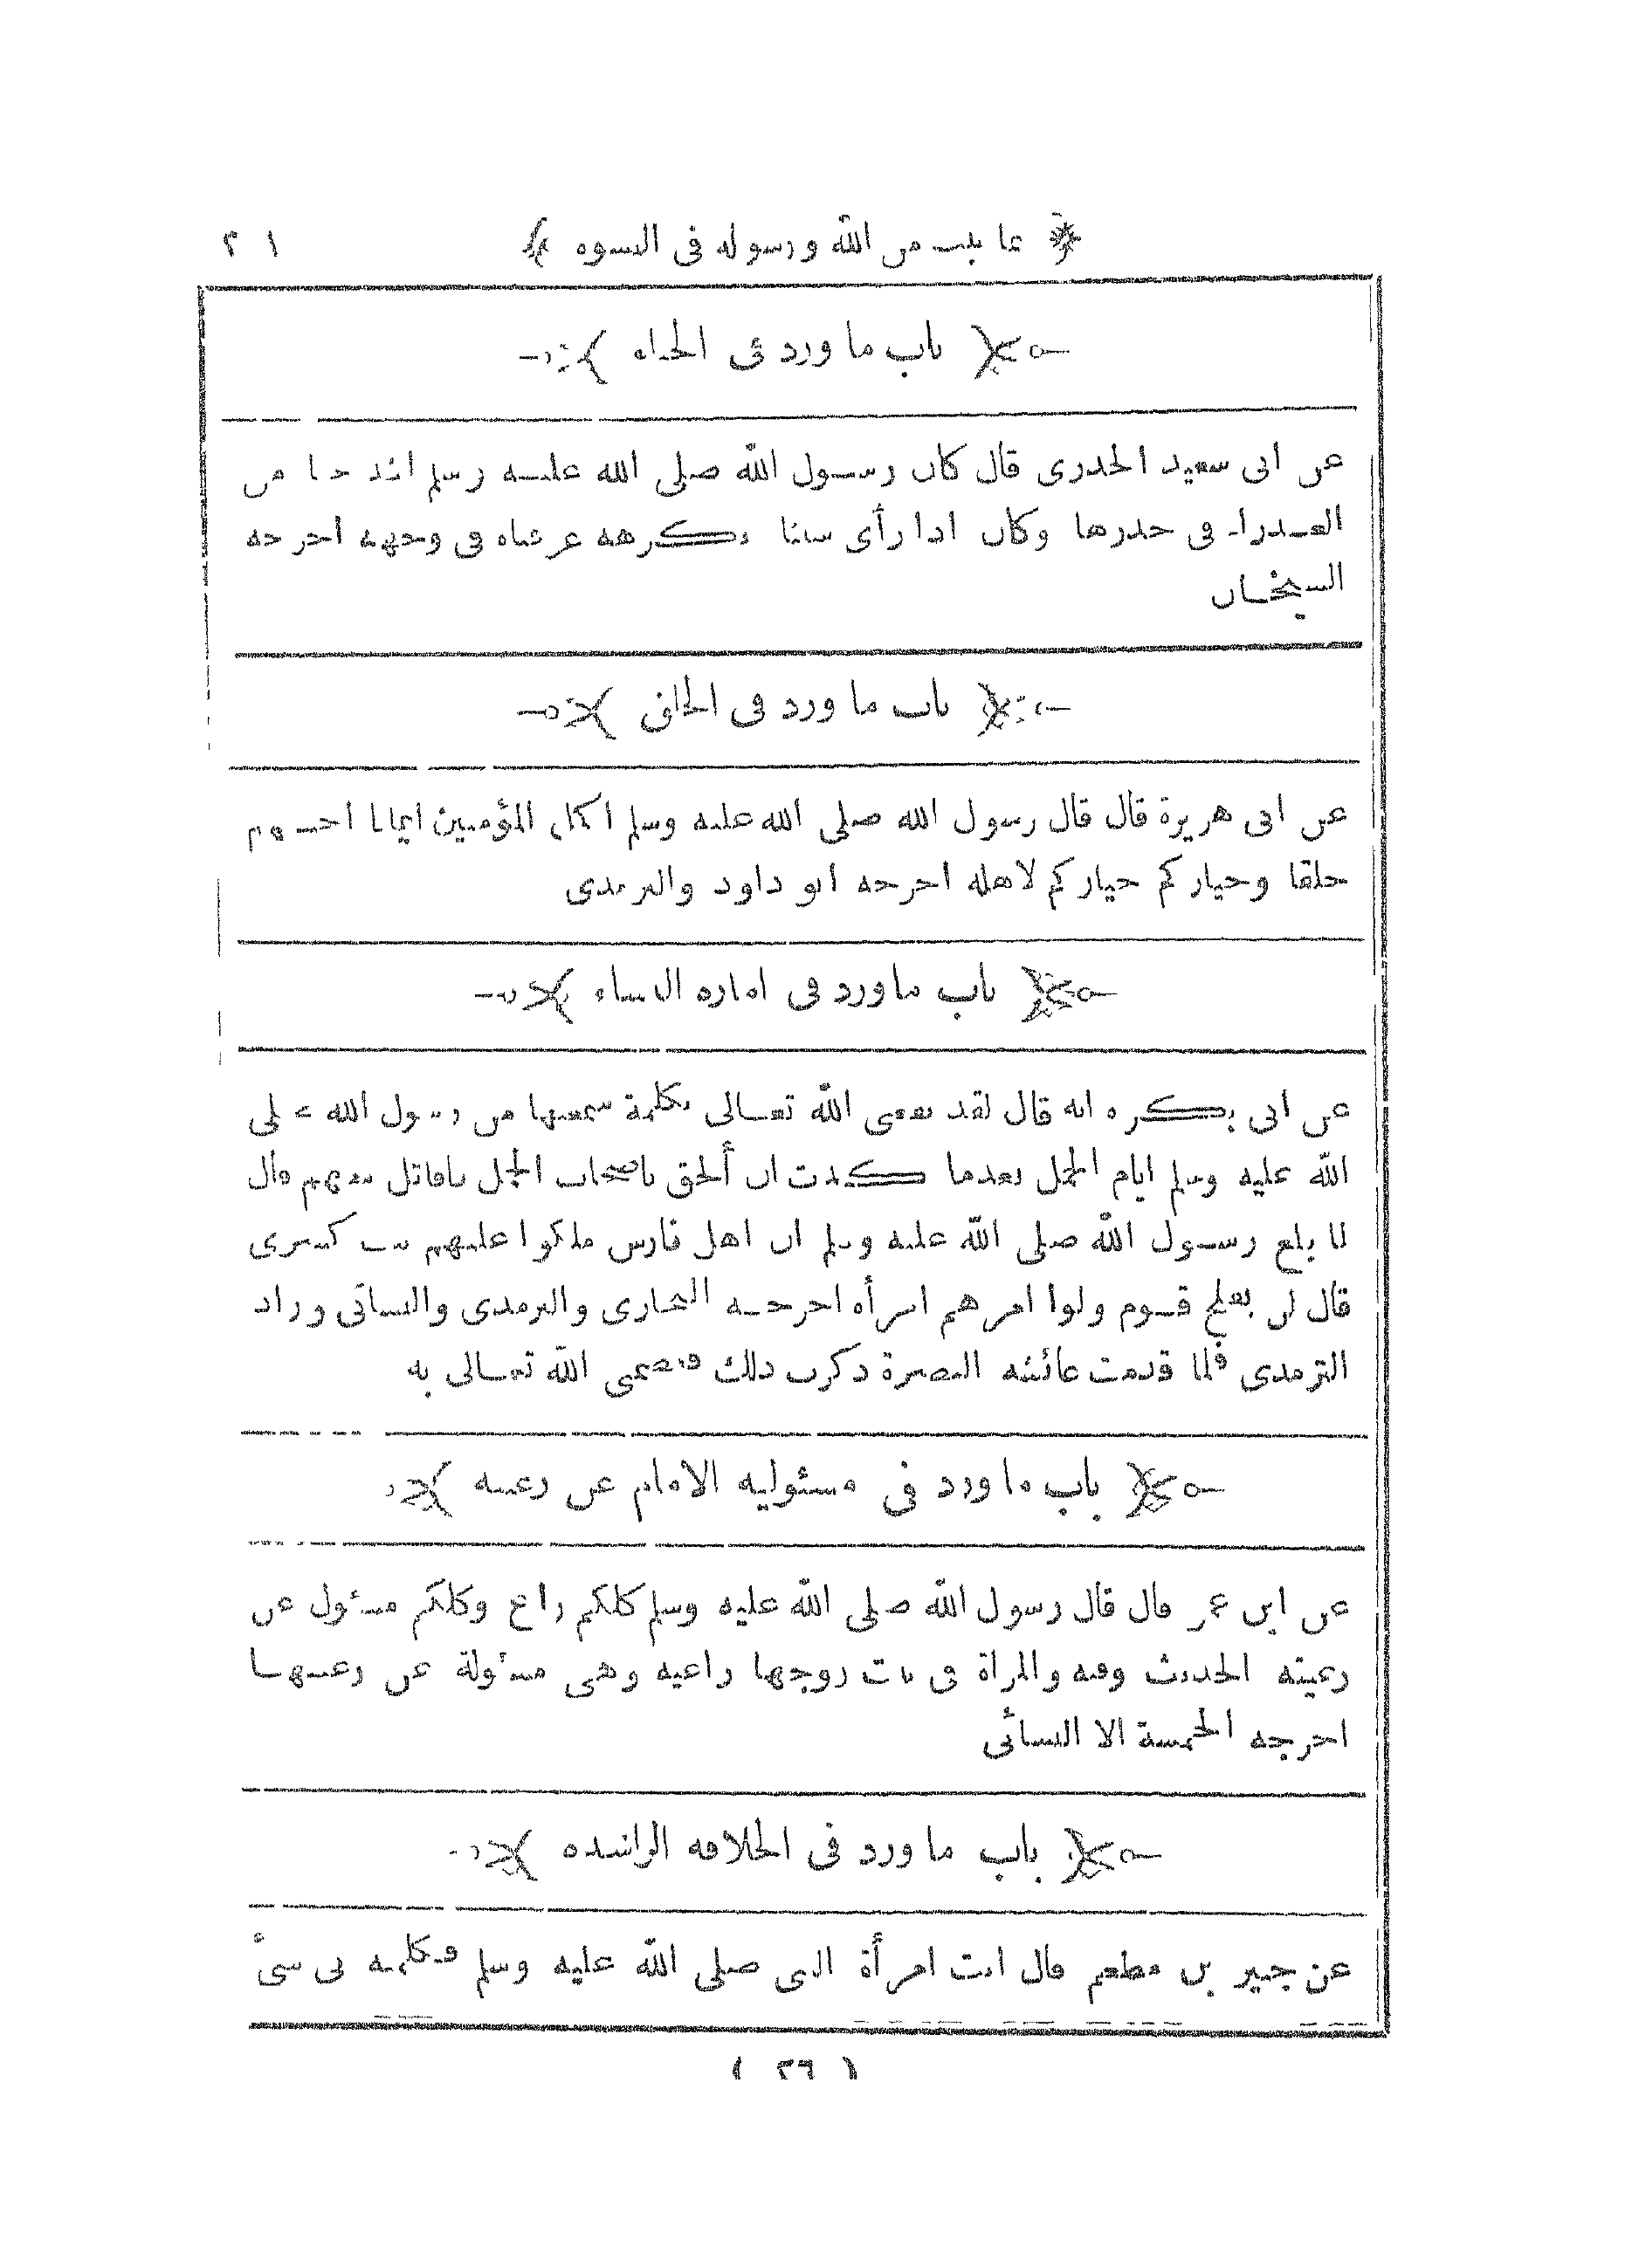 ﴿ مما ثبت من الله ورسوله فى النسوة ﴾
﴿ باب ما ورد فى الحياء ﴾
عن ابى سعيد الخدرى قال كان رسول الله صلى الله عليه وسلم اشد حياء من
العذراء فى خدرها وكان اذا رأى شيئا يكرهه عرفناه فى وجهه اخرجه
الشيخان
﴿ باب ما ورد فى الخلق ﴾
عن ابى هريرة قال قال رسول الله صلى الله عليه وسلم اكمل المؤمنين ايمانا احسنهم
خلقا وخياركم خياركم لاهله اخرجه ابو داود والترمذى
﴿ باب ما ورد فى امارة النساء ﴾
عن ابى بكرة انه قال لقد نفعنى الله تعالى بكلمة سمعتها من رسول الله صلى
الله عليه وسلم ايام الجمل بعدما كدت ان ألحق باصحاب الجمل فاقاتل معهم قال
لما بلغ رسول الله صلى الله عليه وسلم ان اهل فارس ملكوا عليهم بنت كسرى
قال لن يفلح قوم ولوا امرهم امرأة اخرجه البخارى والترمذى والنسائى وزاد
الترمذى فلما قدمت عائشة البصرة ذكرت ذلك فعصمنى الله تعالى به
﴿ باب ما ورد فى مسئولية الامام عن رعيته ﴾
عن ابن عمر قال قال رسول الله صلى الله عليه وسلم كلكم راع وكلكم مسئول عن
رعيته الحديث وفيه والمرأة فى بيت زوجها راعية وهى مسئولة عن رعيتها
اخرجه الخمسة الا النسائى
﴿ باب ما ورد فى الخلافة الراشدة ﴾
عن جبير بن مطعم قال اتت امرأة النبى صلى الله عليه وسلم فكلمته فى شئ
( ٢٦ )